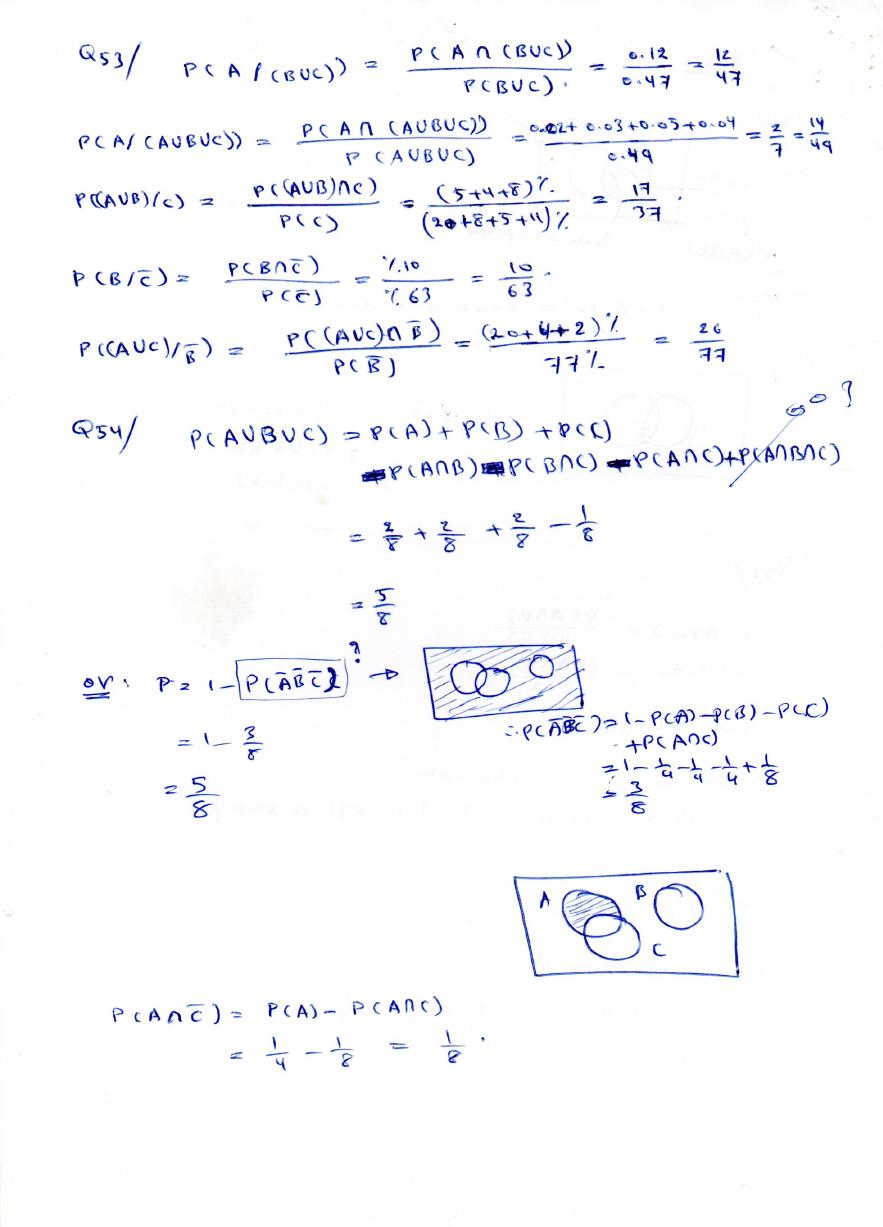 Q53/ P(A/(BUC)) = P(A∩(BUC)) / P(BUC) = 0.12/0.47 = 12/47
P(A/(AUBUC)) = P(A∩(AUBUC)) / P(AUBUC) = 0.02+0.03+0.05+0.04 / 0.49 = 2/7 = 14/49
P((AUB)/C) = P((AUB)∩C) / P(C) = (5+4+8)% / (20+8+5+4)% = 17/37 .
P(B/C̅) = P(B∩C̅) / P(C̅) = %10 / %63 = 10/63 .
P((AUC)/B̅) = P((AUC)∩B̅) / P(B̅) = (20+4+2)% / 77% = 26/77
Q54/ P(AUBUC) = P(A) + P(B) + P(C)
-P(A∩B) -P(B∩C) -P(A∩C)+P(A∩B∩C) 0 0 ?
= 2/8 + 2/8 + 2/8 - 1/8
= 5/8
or: P = 1 - P(A̅B̅C̅) ? →
= 1 - 3/8
= 5/8
∴P(A̅B̅C̅) = 1-P(A)-P(B)-P(C)
+P(A∩C)
= 1 - 1/4 - 1/4 - 1/4 + 1/8
= 3/8
A B
C
P(A∩C̅) = P(A) - P(A∩C)
= 1/4 - 1/8 = 1/8 .